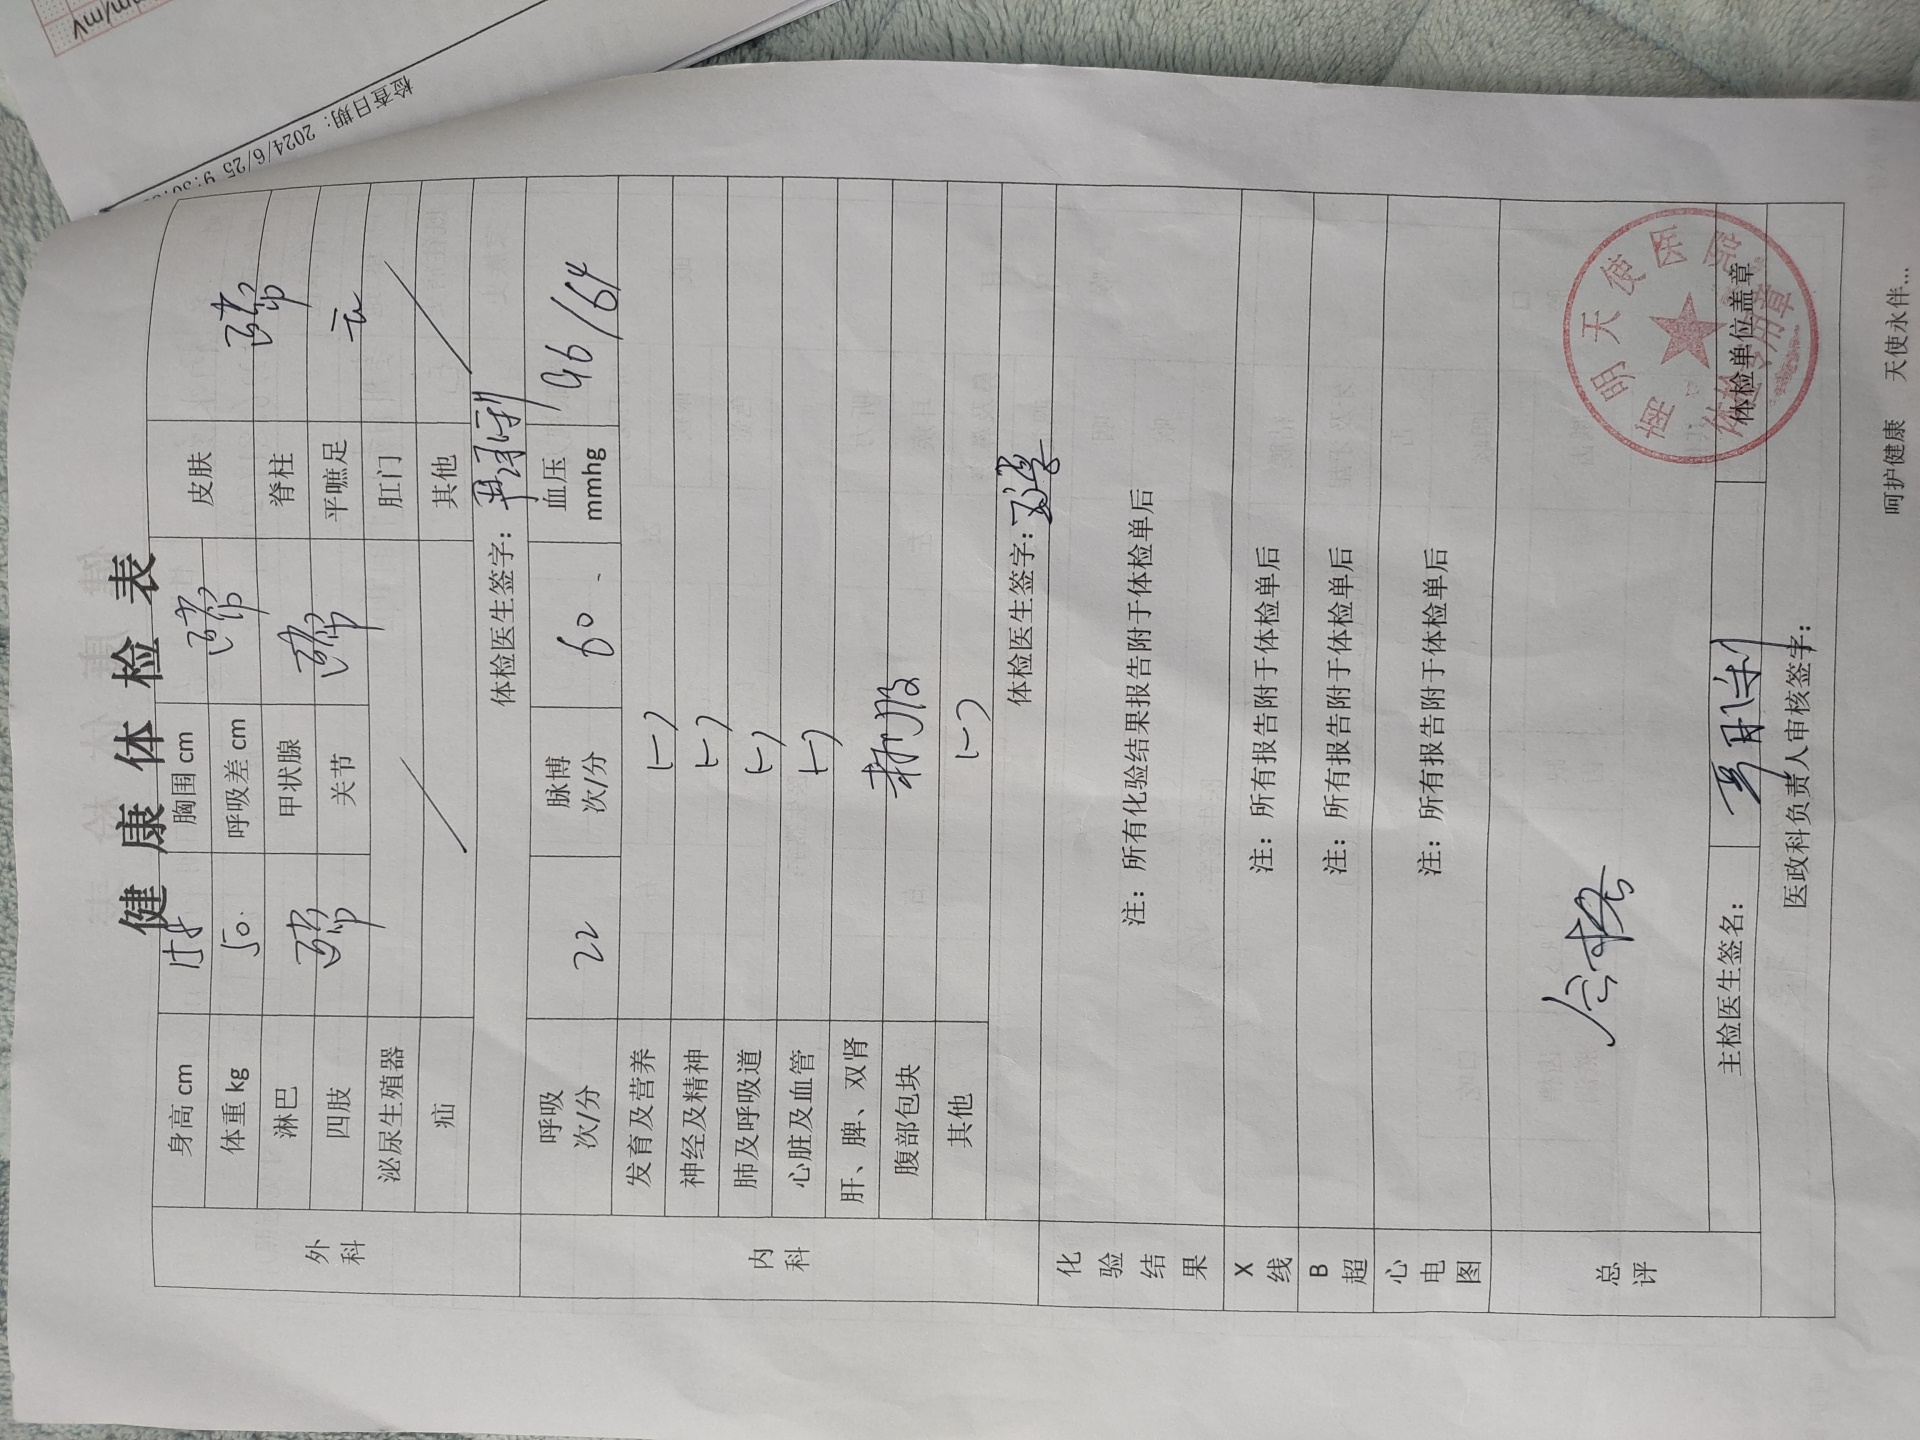 健康体检表
外科
身高 cm 胸围 cm 皮肤
体重 kg 50. 呼吸差 cm 正常 正常
淋巴 甲状腺 脊柱
四肢 正常 关节 正常 平蹠足 无
泌尿生殖器 肛门
疝 其他
体检医生签字:
内科
呼吸 次/分 22 脉博 次/分 60 血压 mmhg 96/64
发育及营养 (-)
神经及精神 (-)
肺及呼吸道 (-)
心脏及血管 (-)
肝、脾、双肾
腹部包块 未触及
其他 (-)
体检医生签字:
化验结果 注: 所有化验结果报告附于体检单后
X线 注: 所有报告附于体检单后
B超 注: 所有报告附于体检单后
心电图 注: 所有报告附于体检单后
总评 合格
主检医生签名: 体检单位盖章
医政科负责人审核签字:
明天使医院
体检专用章
呵护健康 天使永伴...
检查日期: 2024/6/25
mm/mV